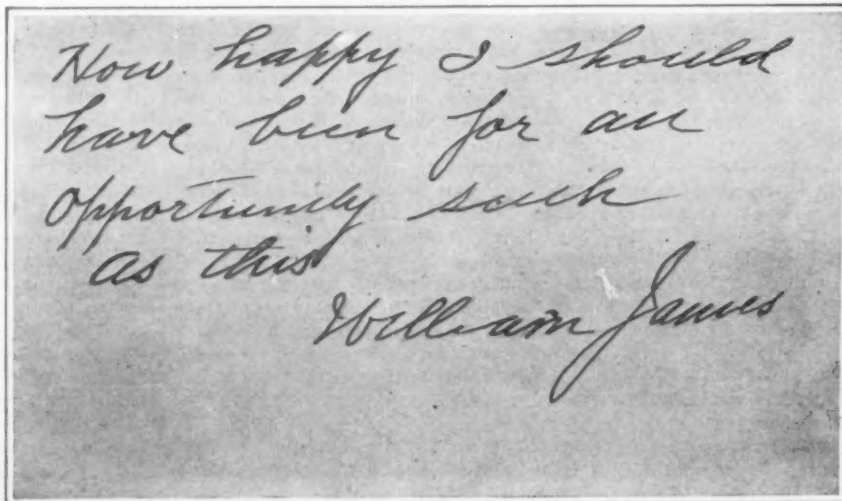 How happy I should
have been for an
opportunity such
as this
William James